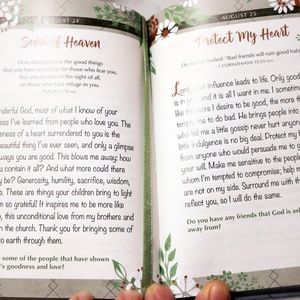 AUGUST 24
Some of Heaven
How abundant are the good things
that you have stored up for those who fear you,
that you bestow in the sight of all,
on those who take refuge in you.
PSALM 31:19
nderful God, most of what I know of your
ness I've learned from people who love you. The
ness of a heart surrendered to you is the
beautiful thing I've ever seen, and only a glimpse
ways you are good. This blows me away: how
u contain it all? And what more could there
y be? Generosity, humility, sacrifice, wisdom,
se. These are things your children bring to light
m so grateful! It inspires me to be more like
, this unconditional love from my brothers and
n the church. Thank you for bringing some of
to earth through them.
some of the people that have shown
's goodness and love?
AUGUST 25
Protect My Heart
Do not be fooled: "Bad friends will ruin good hab
1 CORINTHIANS 15:33
Lord, your influence leads to life. Only good
is in you, and it is all I want in me. I sometim
like the more I desire to be good, the more thi
tempt me to do bad. He brings people into
who tell me a little gossip never hurt anyone
little dishonesty is no big deal. Protect my
from anyone who would persuade me to g
your will. Make me sensitive to the people
whom I'm tempted to compromise; help me
are not on my side. Surround me with th
reflect you, so I will do the same.
Do you have any friends that God is as
away from?